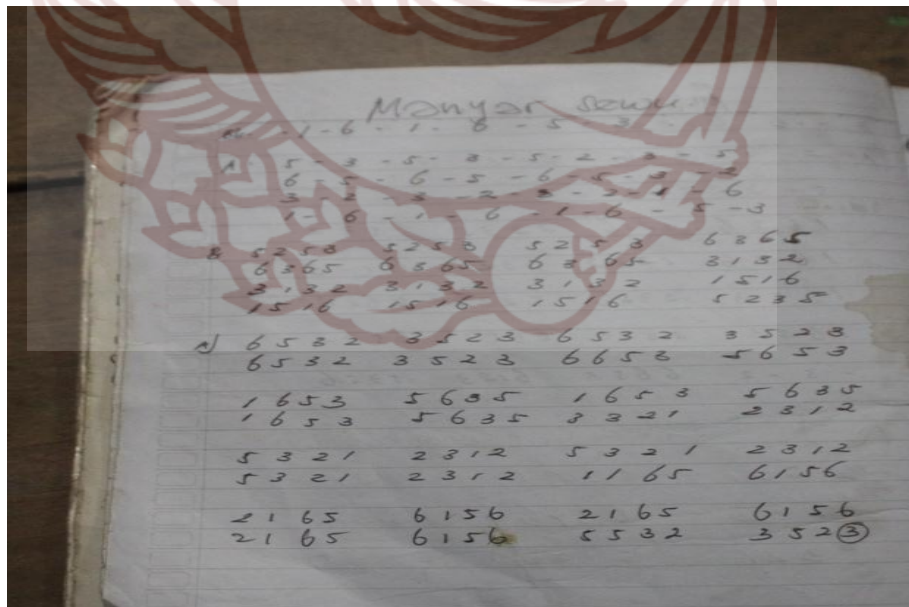 Manyar sewu
- 1 - 6 - 1 - 6 - 5 - 3 -
5 - 3 - 5 - 3 - 5 - 2 - 3 - 5
6 - 5 - 6 - 5 - 6 - 5 - 3 - 2
3 - 2 - 3 - 2 - 3 - 2 - 1 - 6
1 - 6 - 1 - 6 - 1 - 6 - 5 - 3
B 5253 5253 5253 6365
6365 6365 6365 3132
3132 3132 3132 1516
1516 1516 1516 5235
A) 6532 3523 6532 3523
6532 3523 6653 5653
1653 5635 1653 5635
1653 5635 3321 2312
5321 2312 5321 2312
5321 2312 1165 6156
2165 6156 2165 6156
2165 6156 5532 3523